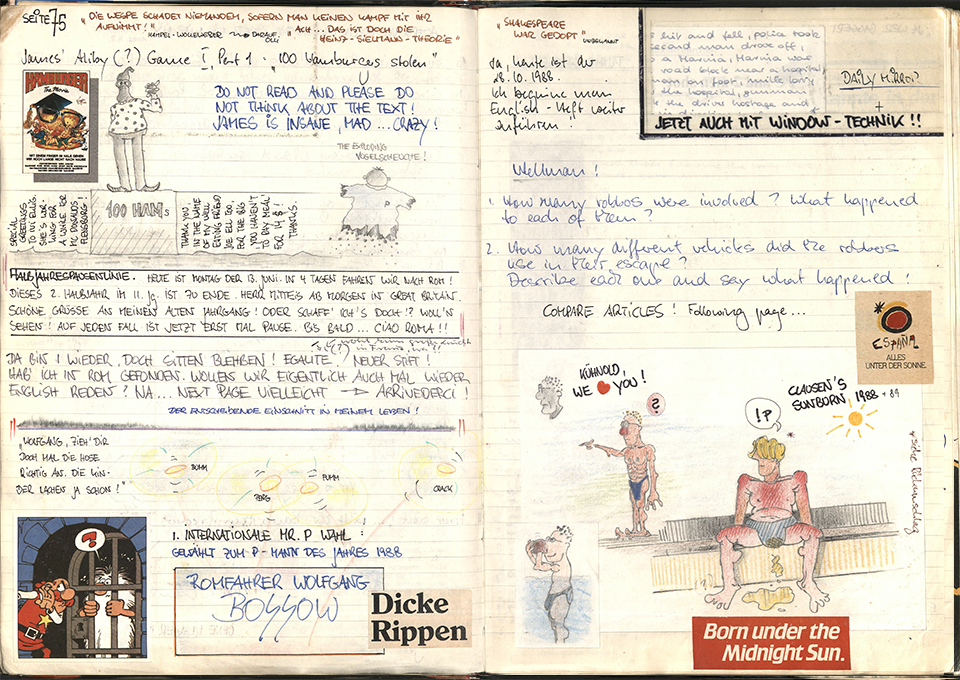 SEITE 75
„DIE WESPE SCHADET NIEMANDEM, SOFERN MAN KEINEN KAMPF MIT IHR
AUFNIMMT!"
„ACH... DAS IST DOCH DIE
HEINZ-SIELMANN-THEORIE"
James' Aliby (?) Game I, Part 1 · "100 Hamburgers stolen"
HAMBURGER
The Movie
DO NOT READ AND PLEASE DO
NOT THINK ABOUT THE TEXT!
JAMES IS INSANE, MAD ... CRAZY!
THE EXPLODING
VOGELSCHEUCHE!
P
SPECIAL
GREETINGS
TO MY ELLIS.
SHE'S WOR-
KING FOR
A WHILE FOR
MC DONALDS
FLENSBURG!
100 HAMs
THANK YOU
IN THE NAME
OF MY WELL
EATING FRIEND
JOE ELL TOO,
FOR THE BIG
YOU HAVEN'T
TO PAY MEAL
FOR 14 $!
THANKS.
HALBJAHRESPAUSENLINIE. HEUTE IST MONTAG DER 13. JUNI. IN 4 TAGEN FAHREN WIR NACH ROM!
DIESES 2. HALBJAHR IM 11. Jg. IST ZU ENDE. HERR MITTEIS AB MORGEN IN GREAT BRITAIN.
SCHÖNE GRÜSSE AN MEINEN ALTEN JAHRGANG! ODER SCHAFF' ICH'S DOCH!? WOLL'N
SEHEN! AUF JEDEN FALL IST JETZT ERST MAL PAUSE. BIS BALD... CIAO ROMA!!
JA BIN I WIEDER. DOCH SITTEN BLEHBEN! EGALITE, NEUER STIFT!
HAB' ICH IN ROM GEFONDEN. WOLLEN WIR EIGENTLICH AUCH MAL WIEDER
ENGLISH REDEN? NA... NEXT PAGE VIELLEICHT → ARRIVEDERCI!
DER ENTSCHEIDENDE EINSCHNITT IN MEINEM LEBEN!
„WOLFGANG, ZIEH' DIR
DOCH MAL DIE HOSE
RICHTIG AN. DIE KIN-
DER LACHEN JA SCHON!"
BUMM
PENG
PUMM
CRACK
?
1. INTERNATIONALE MR. P WAHL:
GEWÄHLT ZUM P-MANN DES JAHRES 1988
ROMFAHRER WOLFGANG
BOSSOW
Dicke
Rippen
„SHAKESPEARE
WAR GEDOPT"
UNBEKANNT
Ja, heute ist der
28.10.1988.
Ich beginne mein
English-Heft weiter
zuführen!
hit and fell, police took
second man drove off,
DAILY MIRROR?
+
JETZT AUCH MIT WINDOW-TECHNIK!!
Wellman!
1. How many robbos were involved? What happened
to each of them?
2. How many different vehicles did the robbos
use in their escape?
Describe each one and say what happened!
COMPARE ARTICLES! Following page...
ESPAÑA
ALLES
UNTER DER SONNE.
KÜHNOLD,
WE ❤ YOU!
?
!P
CLAUSEN'S
SUNBORN 1988 + 89
Born under the
Midnight Sun.